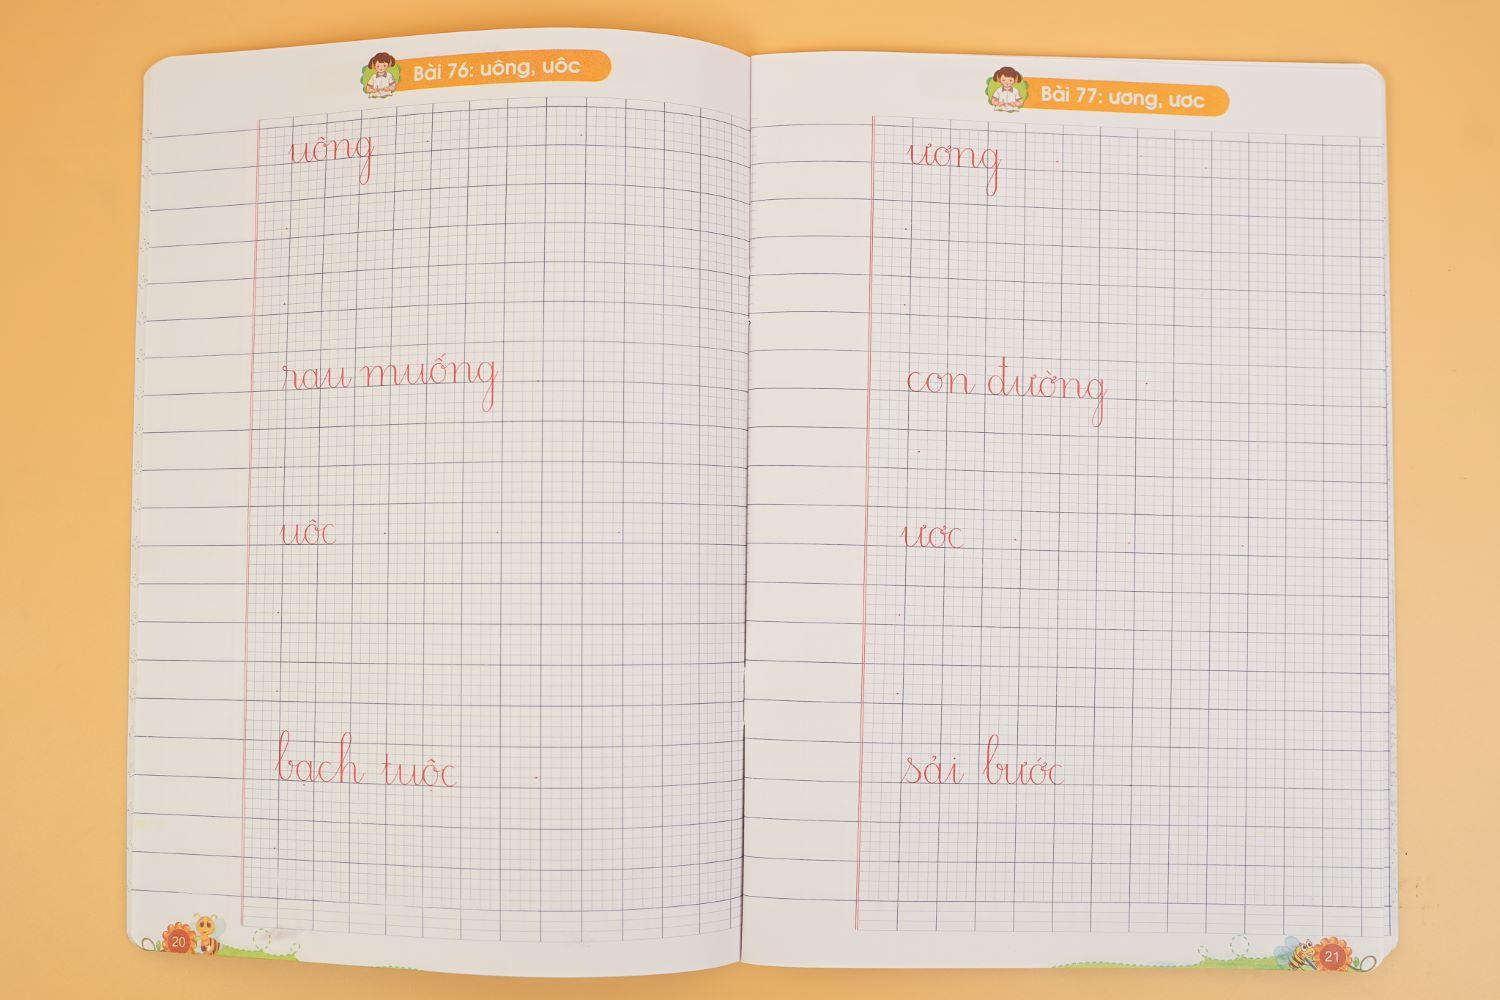 Bài 76: uông, uôc
uông
rau muống
uôc
bạch tuộc
20
Bài 77: ương, ươc
ương
con đường
ươc
sải bước
21